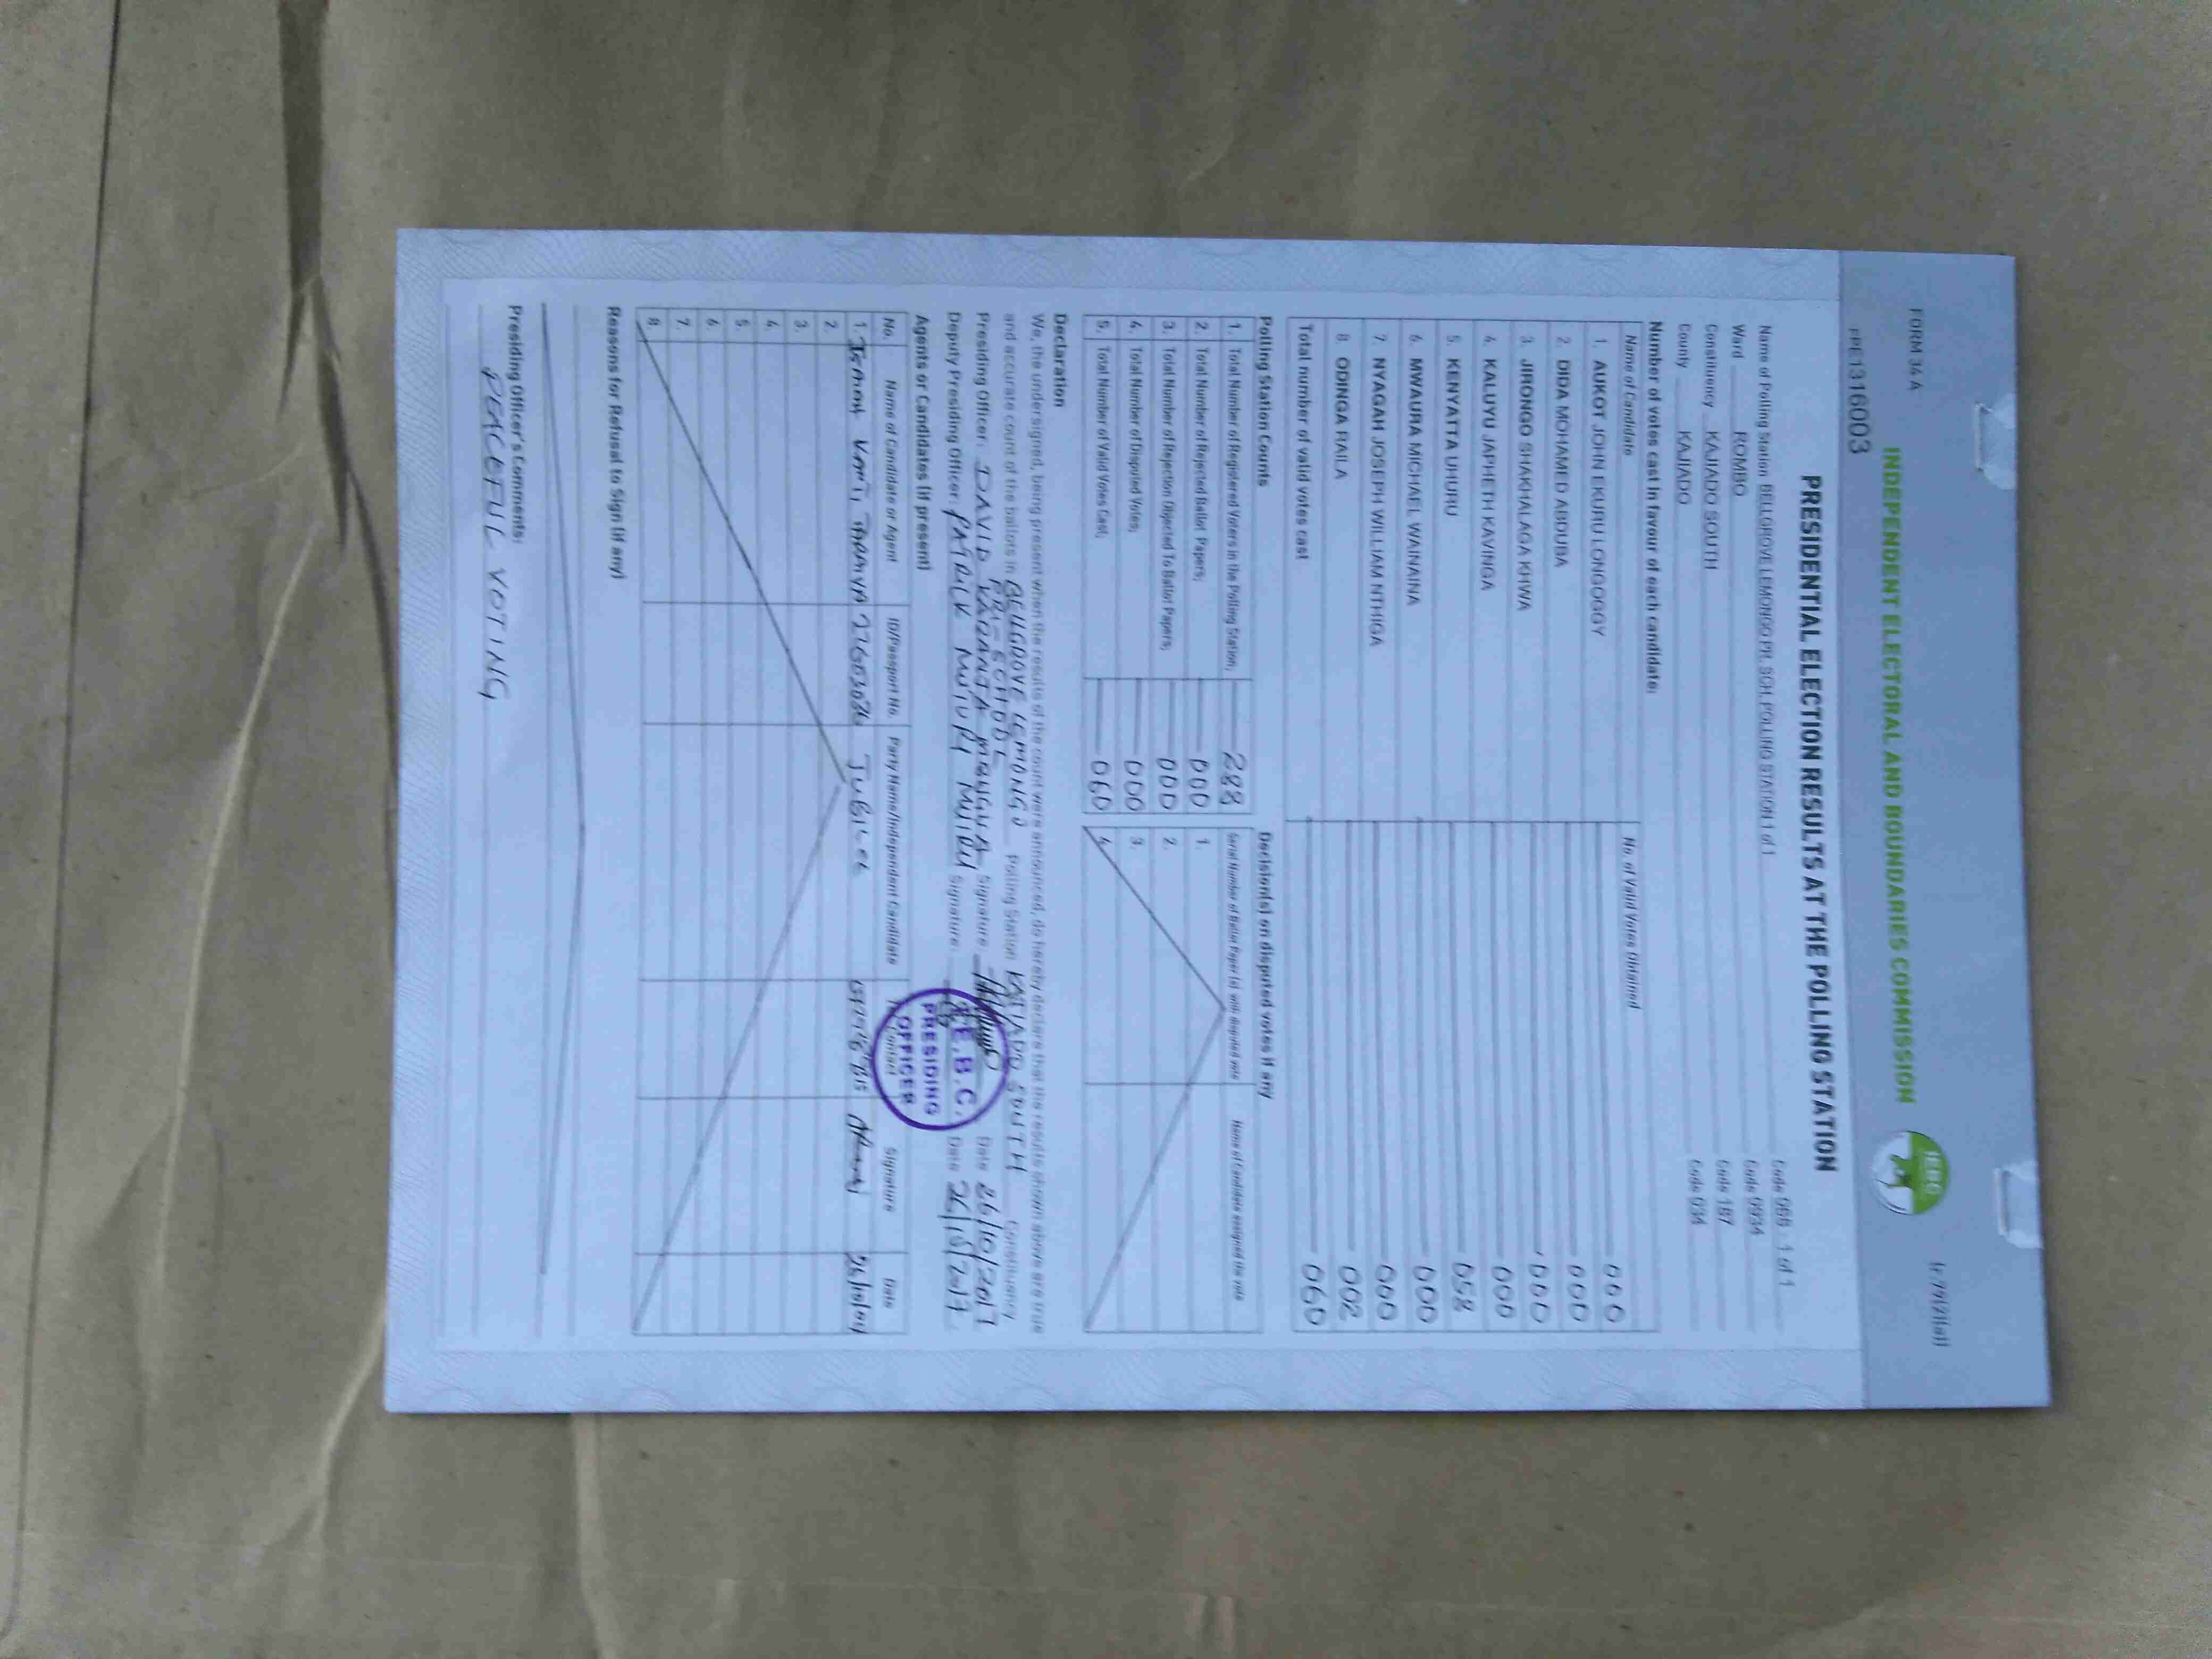 FORM 34 A
INDEPENDENT ELECTORAL AND BOUNDARIES COMMISSION
IEBC
PRE1316003
PRESIDENTIAL ELECTION RESULTS AT THE POLLING STATION
Name of Polling Station BELLGROVE LEMONGO PR. SCH. POLLING STATION 1 of 1 Code 066 - 1 of 1
Ward ROMBO Code 0934
Constituency KAJIADO SOUTH Code 187
County KAJIADO Code 034
Number of votes cast in favour of each candidate:
Name of Candidate No. of Valid Votes Obtained
1. AUKOT JOHN EKURU LONGOGGY 000
2. DIDA MOHAMED ABDUBA 000
3. JIRONGO SHAKHALAGA KHWA 000
4. KALUYU JAPHETH KAVINGA 000
5. KENYATTA UHURU 058
6. MWAURA MICHAEL WAINAINA 000
7. NYAGAH JOSEPH WILLIAM NTHIGA 000
8. ODINGA RAILA 002
Total number of valid votes cast 060
Polling Station Counts
1. Total Number of Registered Voters in the Polling Station; 288
2. Total Number of Rejected Ballot Papers; 000
3. Total Number of Rejection Objected To Ballot Papers; 000
4. Total Number of Disputed Votes; 000
5. Total Number of Valid Votes Cast; 060
Decision(s) on disputed votes if any
Serial Number of Ballot Paper (s) with disputed vote Name of Candidate assigned the vote
1.
2.
3.
4.
Declaration
We, the undersigned, being present when the results of the count were announced, do hereby declare that the results shown above are true
and accurate count of the ballots in BELLGROVE LEMONGO PRI-SCHOOL Polling Station KAJIADO SOUTH Constituency
Presiding Officer: DAVID Signature Date 26/10/2017
Deputy Presiding Officer: PATRICK MUIURI MUIRU Signature: Date 26/10/2017
I.E.B.C.
PRESIDING
OFFICER
Agents or Candidates (if present)
No. Name of Candidate or Agent ID/Passport No. Party Name/Independent Candidate Contact Signature Date
1. JUBILEE
2.
3.
4.
5.
6.
7.
8.
Reasons for Refusal to Sign (if any)
Presiding Officer's Comments:
PEACEFUL VOTING